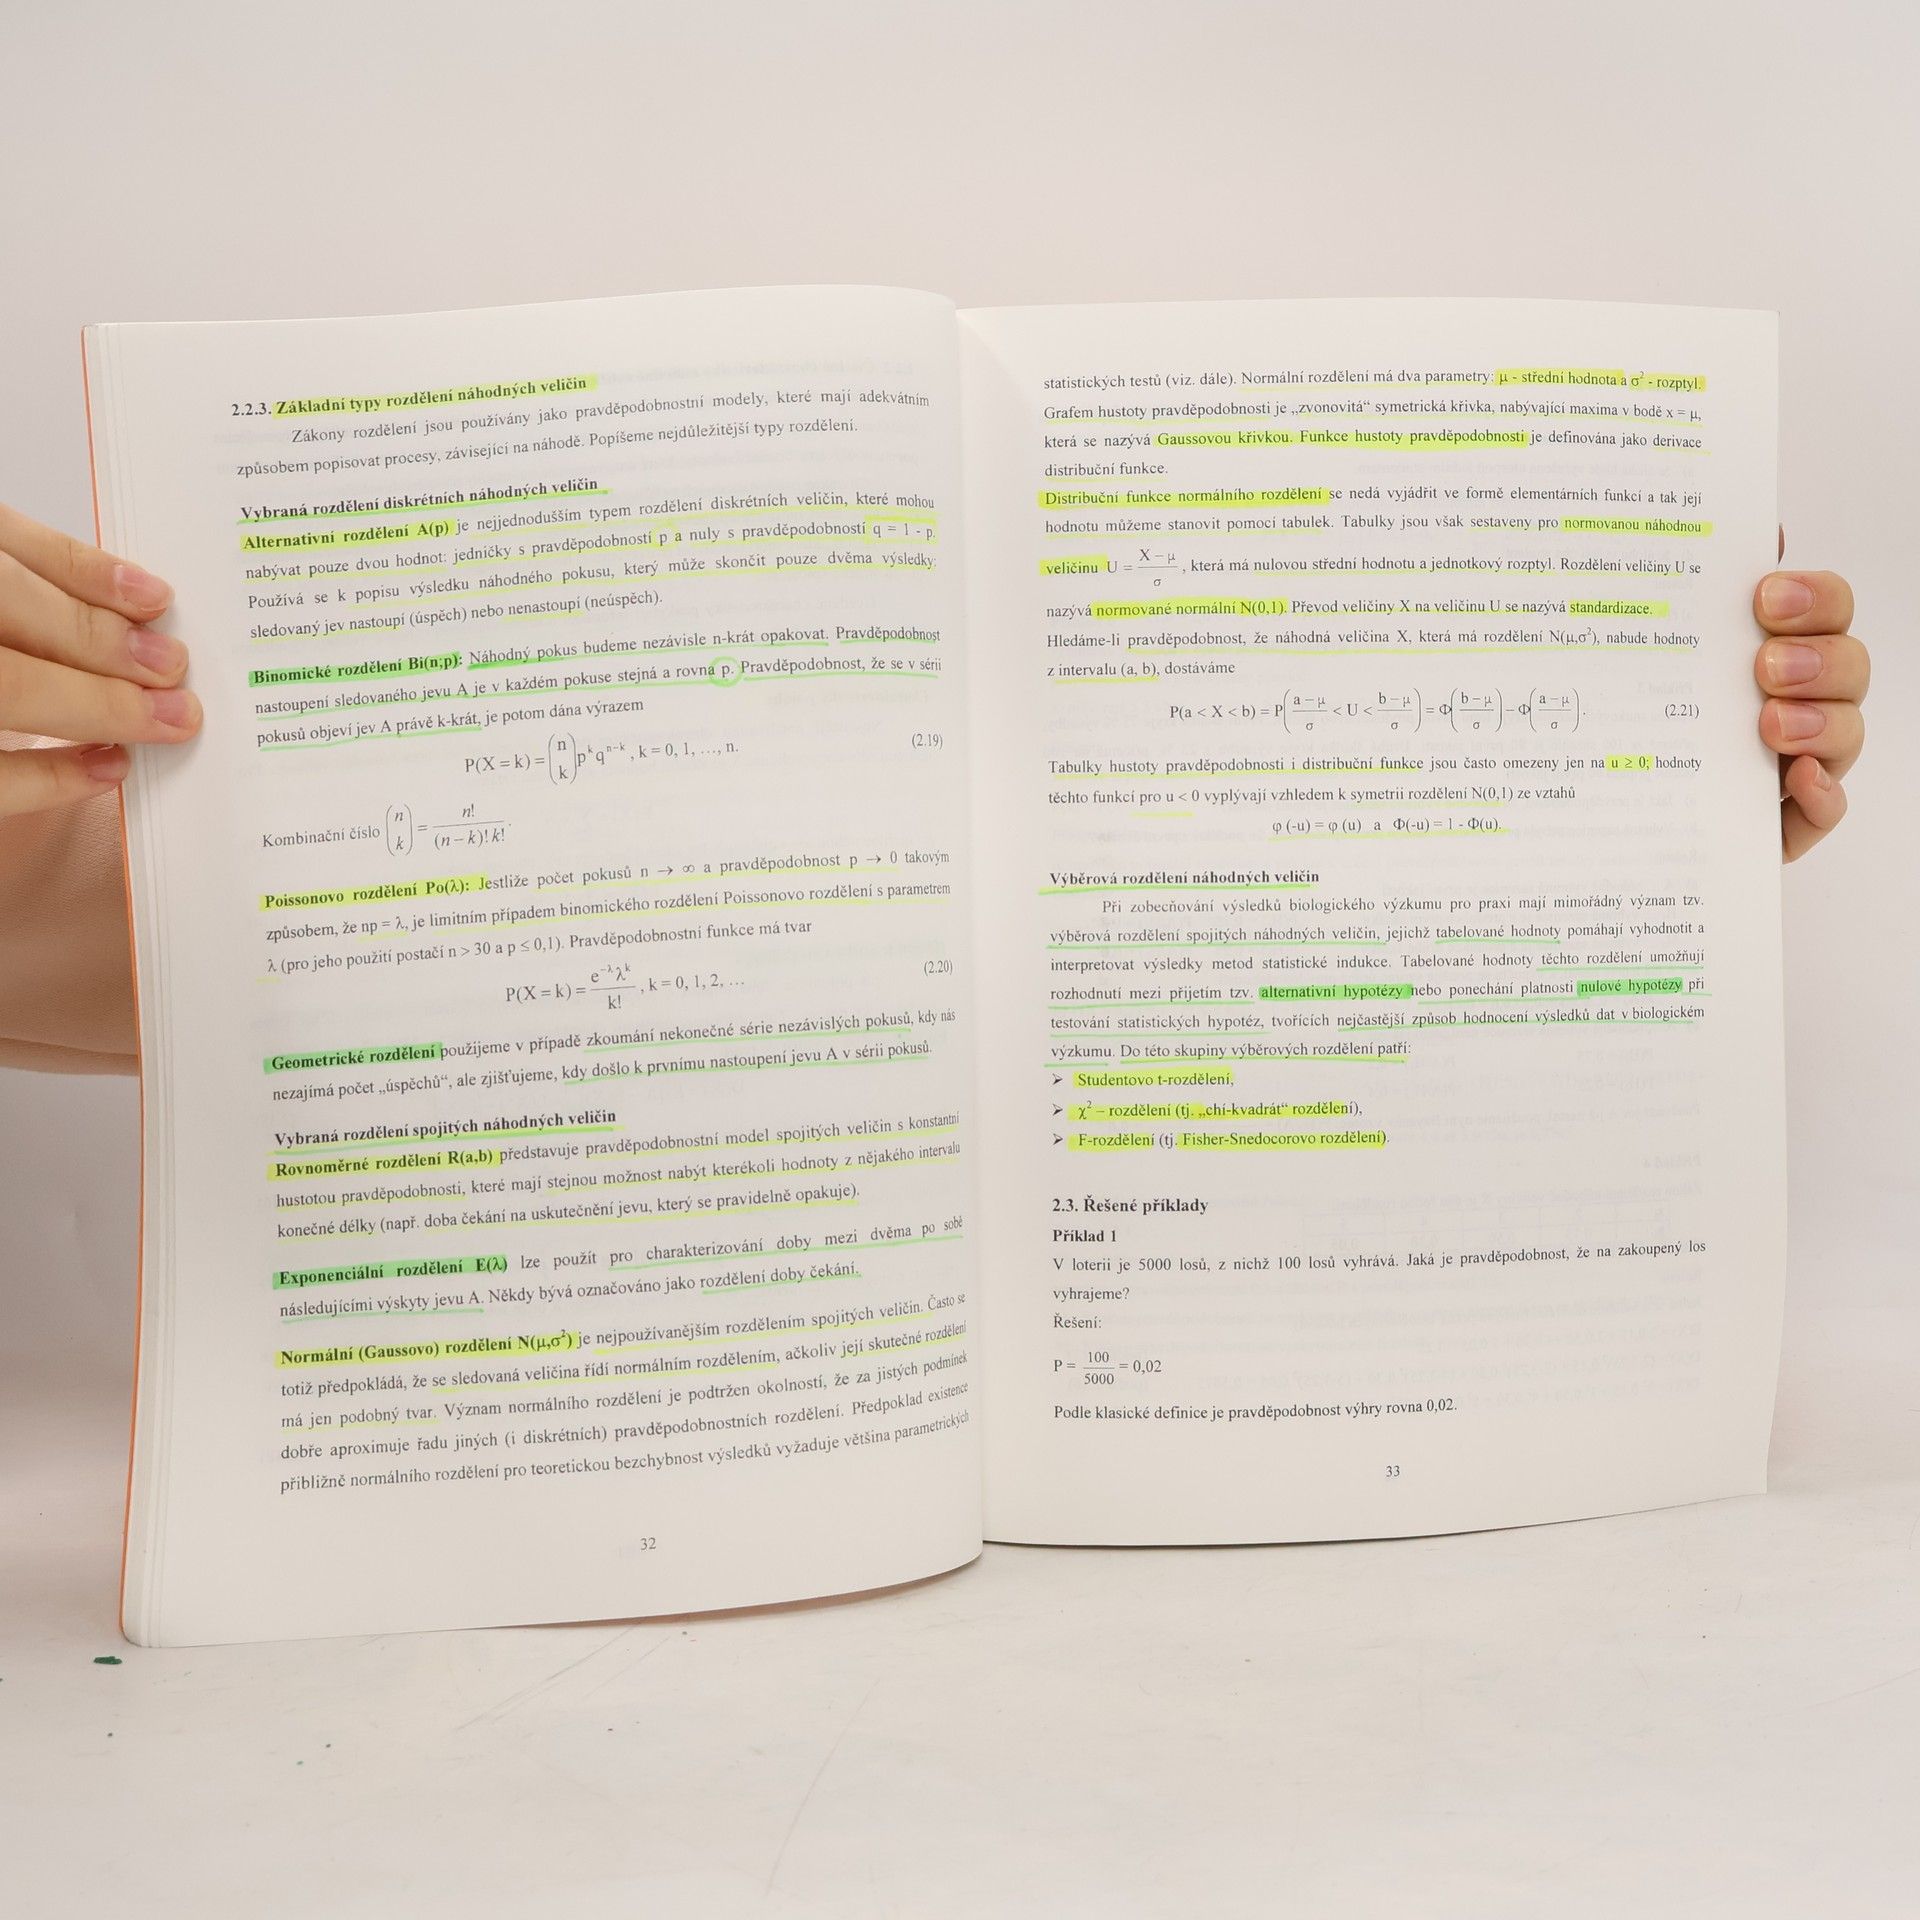 2.2.3. Základní typy rozdělení náhodných veličin
Zákony rozdělení jsou používány jako pravděpodobnostní modely, které mají adekvátním
způsobem popisovat procesy, závisející na náhodě. Popíšeme nejdůležitější typy rozdělení.
Vybraná rozdělení diskrétních náhodných veličin
Alternativní rozdělení A(p) je nejjednodušším typem rozdělení diskrétních veličin, které mohou
nabývat pouze dvou hodnot: jedničky s pravděpodobností p a nuly s pravděpodobností q = 1 - p.
Používá se k popisu výsledku náhodného pokusu, který může skončit pouze dvěma výsledky:
sledovaný jev nastoupí (úspěch) nebo nenastoupí (neúspěch).
Binomické rozdělení Bi(n;p): Náhodný pokus budeme nezávisle n-krát opakovat. Pravděpodobnost
nastoupení sledovaného jevu A je v každém pokuse stejná a rovna p. Pravděpodobnost, že se v sérii
pokusů objeví jev A právě k-krát, je potom dána výrazem
P(X = k) = (n k) p^k q^(n-k) , k = 0, 1, …, n. (2.19)
Kombinační číslo (n k) = n! / (n – k)! k! .
Poissonovo rozdělení Po(λ): Jestliže počet pokusů n → ∞ a pravděpodobnost p → 0 takovým
způsobem, že np = λ, je limitním případem binomického rozdělení Poissonovo rozdělení s parametrem
λ (pro jeho použití postačí n > 30 a p ≤ 0,1). Pravděpodobnostní funkce má tvar
P(X = k) = e^(–λ) λ^k / k! , k = 0, 1, 2, … (2.20)
Geometrické rozdělení použijeme v případě zkoumání nekonečné série nezávislých pokusů, kdy nás
nezajímá počet „úspěchů“, ale zjišťujeme, kdy došlo k prvnímu nastoupení jevu A v sérii pokusů.
Vybraná rozdělení spojitých náhodných veličin
Rovnoměrné rozdělení R(a,b) představuje pravděpodobnostní model spojitých veličin s konstantní
hustotou pravděpodobnosti, které mají stejnou možnost nabýt kterékoli hodnoty z nějakého intervalu
konečné délky (např. doba čekání na uskutečnění jevu, který se pravidelně opakuje).
Exponenciální rozdělení E(λ) lze použít pro charakterizování doby mezi dvěma po sobě
následujícími výskyty jevu A. Někdy bývá označováno jako rozdělení doby čekání.
Normální (Gaussovo) rozdělení N(μ,σ²) je nejpoužívanějším rozdělením spojitých veličin. Často se
totiž předpokládá, že se sledovaná veličina řídí normálním rozdělením, ačkoliv její skutečné rozdělení
má jen podobný tvar. Význam normálního rozdělení je podtržen okolností, že za jistých podmínek
dobře aproximuje řadu jiných (i diskrétních) pravděpodobnostních rozdělení. Předpoklad existence
přibližně normálního rozdělení pro teoretickou bezchybnost výsledků vyžaduje většina parametrických
32
statistických testů (viz. dále). Normální rozdělení má dva parametry: μ - střední hodnota a σ² - rozptyl.
Grafem hustoty pravděpodobnosti je „zvonovitá“ symetrická křivka, nabývající maxima v bodě x = μ,
která se nazývá Gaussovou křivkou. Funkce hustoty pravděpodobnosti je definována jako derivace
distribuční funkce.
Distribuční funkce normálního rozdělení se nedá vyjádřit ve formě elementárních funkcí a tak její
hodnotu můžeme stanovit pomocí tabulek. Tabulky jsou však sestaveny pro normovanou náhodnou
veličinu U = X – μ / σ , která má nulovou střední hodnotu a jednotkový rozptyl. Rozdělení veličiny U se
nazývá normované normální N(0,1). Převod veličiny X na veličinu U se nazývá standardizace.
Hledáme-li pravděpodobnost, že náhodná veličina X, která má rozdělení N(μ,σ²), nabude hodnoty
z intervalu (a, b), dostáváme
P(a < X < b) = P(a – μ / σ < U < b – μ / σ) = Φ(b – μ / σ) – Φ(a – μ / σ). (2.21)
Tabulky hustoty pravděpodobnosti i distribuční funkce jsou často omezeny jen na u ≥ 0; hodnoty
těchto funkcí pro u < 0 vyplývají vzhledem k symetrii rozdělení N(0,1) ze vztahů
φ (-u) = φ (u) a Φ(-u) = 1 - Φ(u).
Výběrová rozdělení náhodných veličin
Při zobecňování výsledků biologického výzkumu pro praxi mají mimořádný význam tzv.
výběrová rozdělení spojitých náhodných veličin, jejichž tabelované hodnoty pomáhají vyhodnotit a
interpretovat výsledky metod statistické indukce. Tabelované hodnoty těchto rozdělení umožňují
rozhodnutí mezi přijetím tzv. alternativní hypotézy nebo ponechání platnosti nulové hypotézy při
testování statistických hypotéz, tvořících nejčastější způsob hodnocení výsledků dat v biologickém
výzkumu. Do této skupiny výběrových rozdělení patří:
➢ Studentovo t-rozdělení,
➢ χ² – rozdělení (tj. „chí-kvadrát“ rozdělení),
➢ F-rozdělení (tj. Fisher-Snedocorovo rozdělení).
2.3. Řešené příklady
Příklad 1
V loterii je 5000 losů, z nichž 100 losů vyhrává. Jaká je pravděpodobnost, že na zakoupený los
vyhrajeme?
Řešení:
P = 100 / 5000 = 0,02
Podle klasické definice je pravděpodobnost výhry rovna 0,02.
33